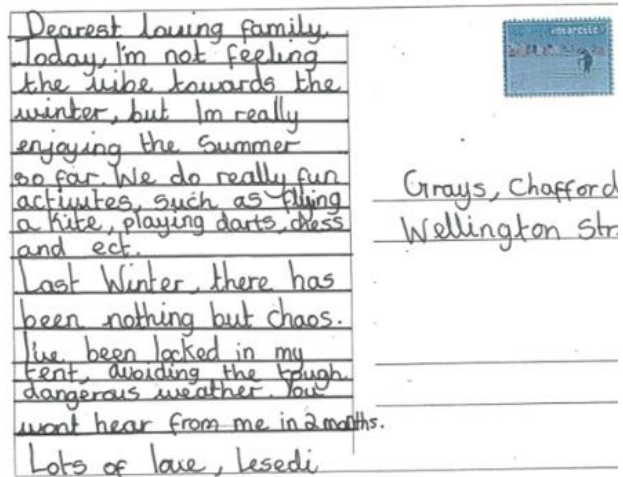 Dearest loving family,
Today, I'm not feeling
the vibe towards the
winter, but Im really
enjoying the Summer
so far. We do really fun
activites, such as flying
a kite, playing darts, chess
and ect.
Last Winter, there has
been nothing but chaos.
I've been locked in my
tent, avoiding the tough
dangerous weather. You
wont hear from me in 2 months.
Lots of love, Lesedi
Grays, Chafford
Wellington Str